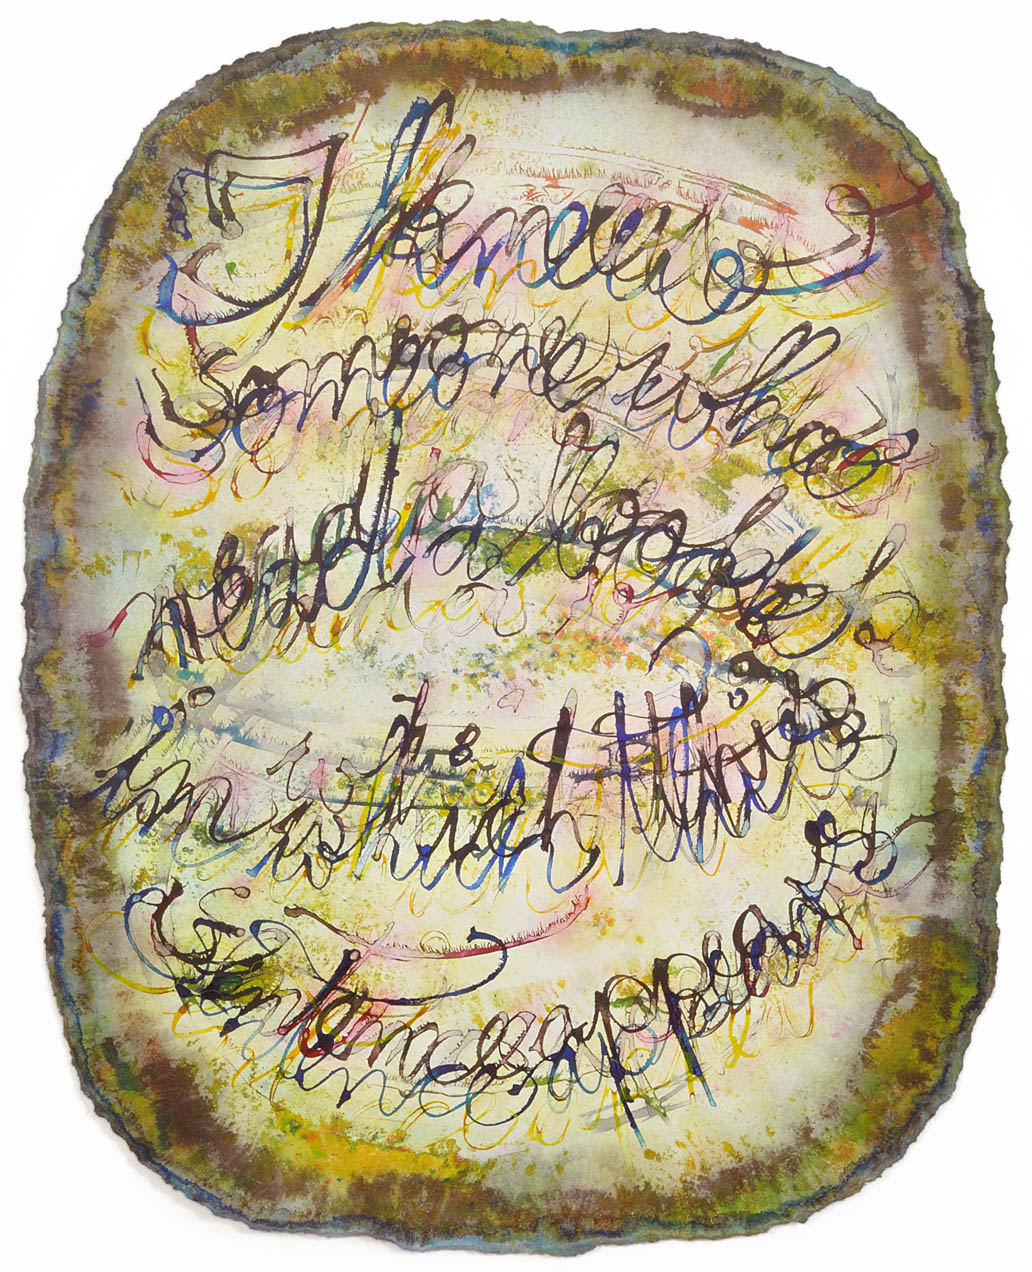 I knew
someone who
read a book
in which this
Sentence appears